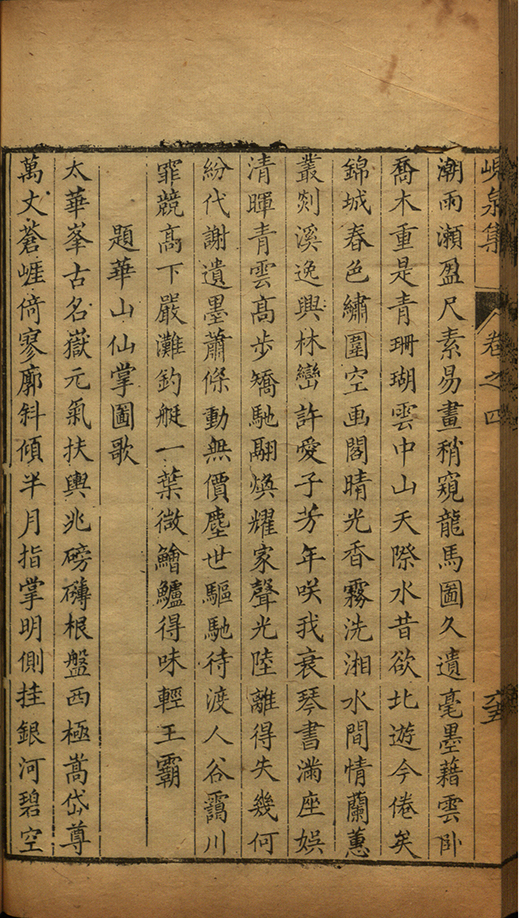 峴泉集 卷之四 六五
潮雨瀨盈尺素易畫稍窺龍馬圖久遺毫墨藉雲卧
喬木重是青珊瑚雲中山天際水昔欲北遊今倦矣
錦城春色繡圍空画閣晴光香霧洗湘水間情蘭蕙
叢剡溪逸興林巒許愛子芳年咲我衰琴書滿座娱
清暉青雲高步矯馳翮煥耀家聲光陸離得失幾何
紛代謝遺墨蕭條動無價塵世驅馳待渡人谷靄川
霏競高下嚴灘釣艇一葉微鱠鱸得味輕王霸
題華山仙掌圖歌
太華峯古名嶽元氣扶輿兆磅礴根盤西極嵩岱尊
萬丈蒼崕倚寥廓斜傾半月指掌明側挂銀河碧空